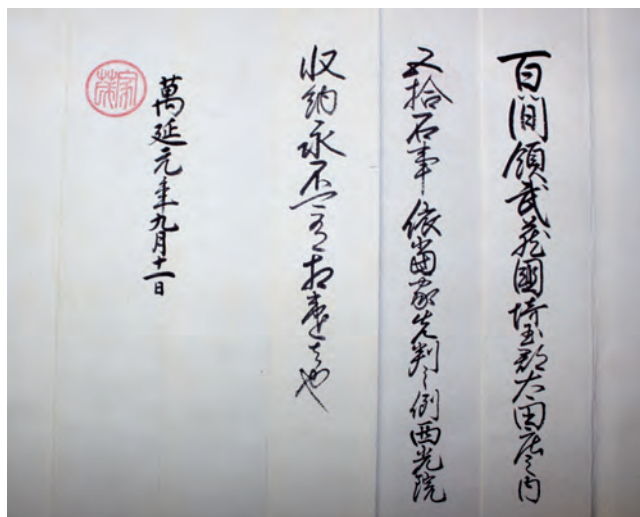 百間領武蔵國埼玉郡太田庄之内
五拾石事依當家先判之例西光院
収納永不可有相違者也
萬延元年九月十一日
家茂